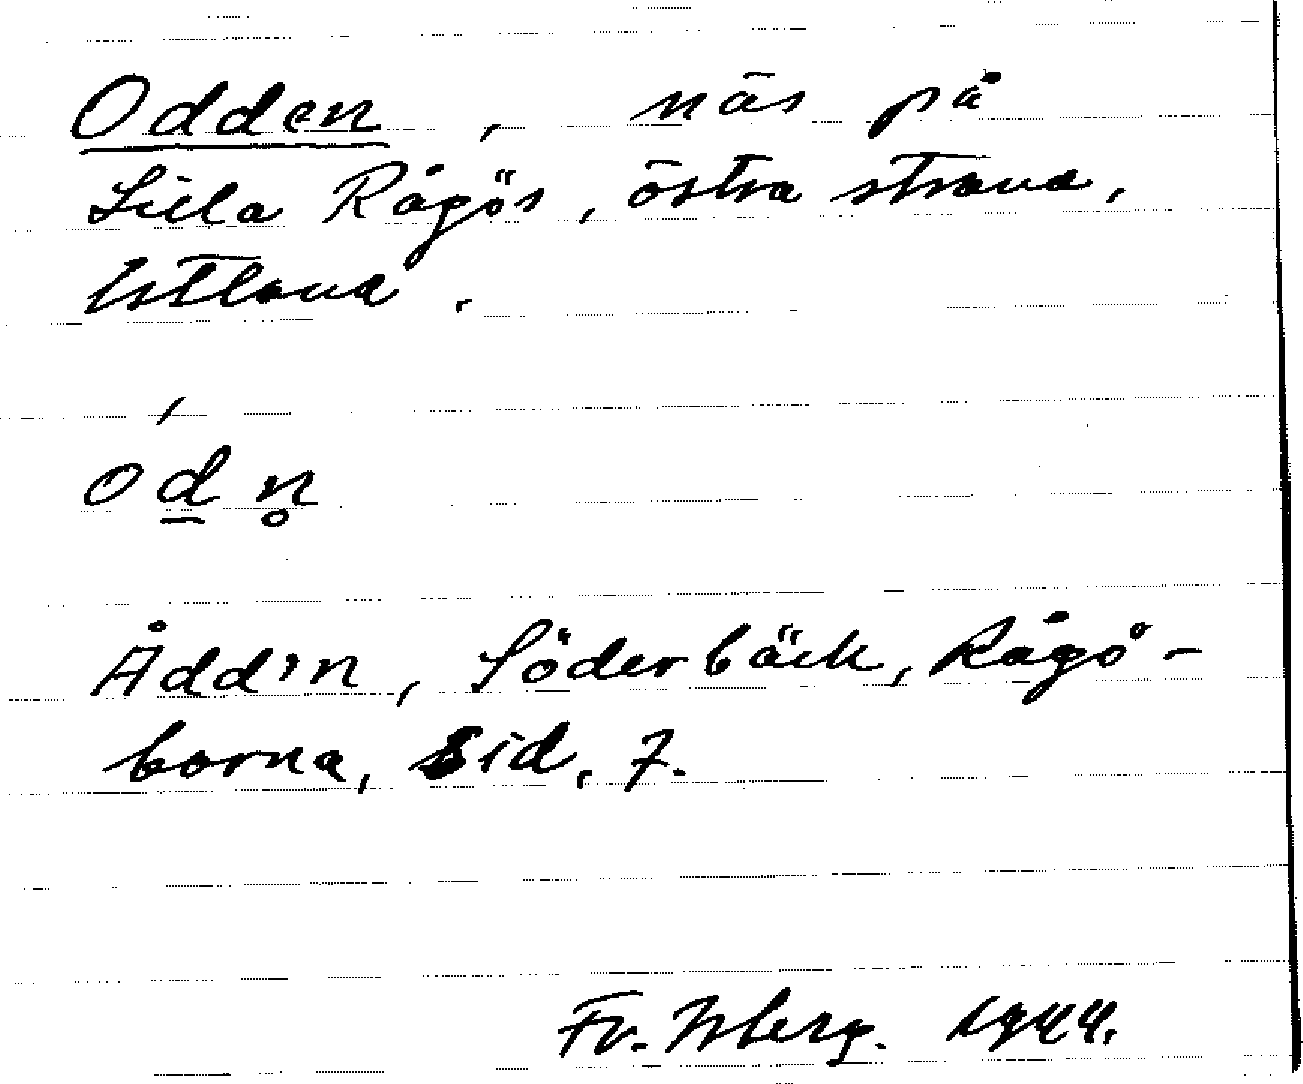 Odden, näs på
Lilla Rågös, östra strand,
Estland.
ó d̲ n̥
Ådd'n, Söderbäck, Rågö-
borna, sid. 7.
Fr. Isberg. 1944.